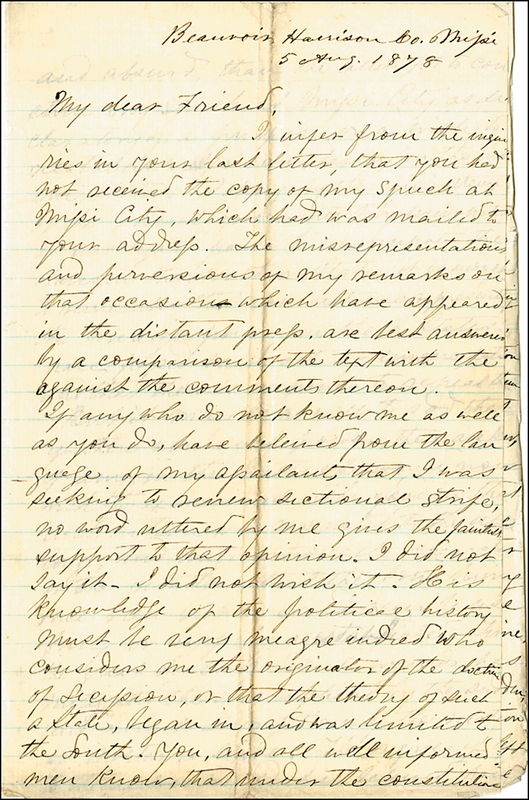 Beauvoir, Harrison Co. Missi
5 Aug. 1878
My dear Friend,
I infer from the inqui
ries in your last letter, that you had
not received the copy of my speech at
Missi City, which had was mailed to
your address. The misrepresentations
and perversions of my remarks on
that occasion which have appeared
in the distant press, are best answered
by a comparison of the text with the
against the comments thereon.
If any who do not know me as well
as you do, have beleived from the lan
guage of my assailants, that I was
seeking to renew sectional strife,
no word uttered by me gives the faintest
support to that opinion. I did not
say it - I did not wish it. His
knowledge of the political history
must be very meagre indeed who
considers me the originator of the doctrine
of secession, or that the theory of such
a State, began in, and was limited to
the South. You, and all well informed
men know, that under the constitution